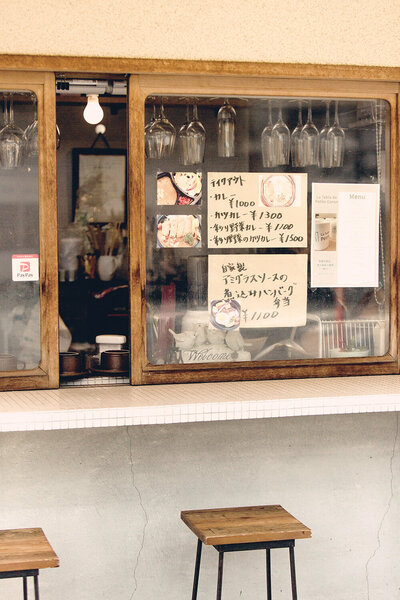 テイクアウト
・カレー
¥1000
・カツカレー ¥1300
・彩り野菜カレー ¥1100
・彩り野菜のカツカレー ¥1500
Menu
自家製
デミグラスソースの
煮込みハンバーグ
弁当
¥1100
PayPay
Welcome